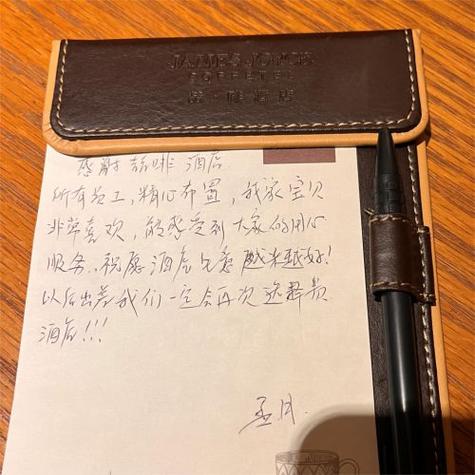 JAMES JOYCE
COFFETEL
感谢 咖啡 酒店
所有员工,精心布置,我家宝贝
非常喜欢,能感受到大家的用心
服务,祝愿酒店生意越来越好!
以后出差我们一定会再次选择贵
酒店!!!
孟月.